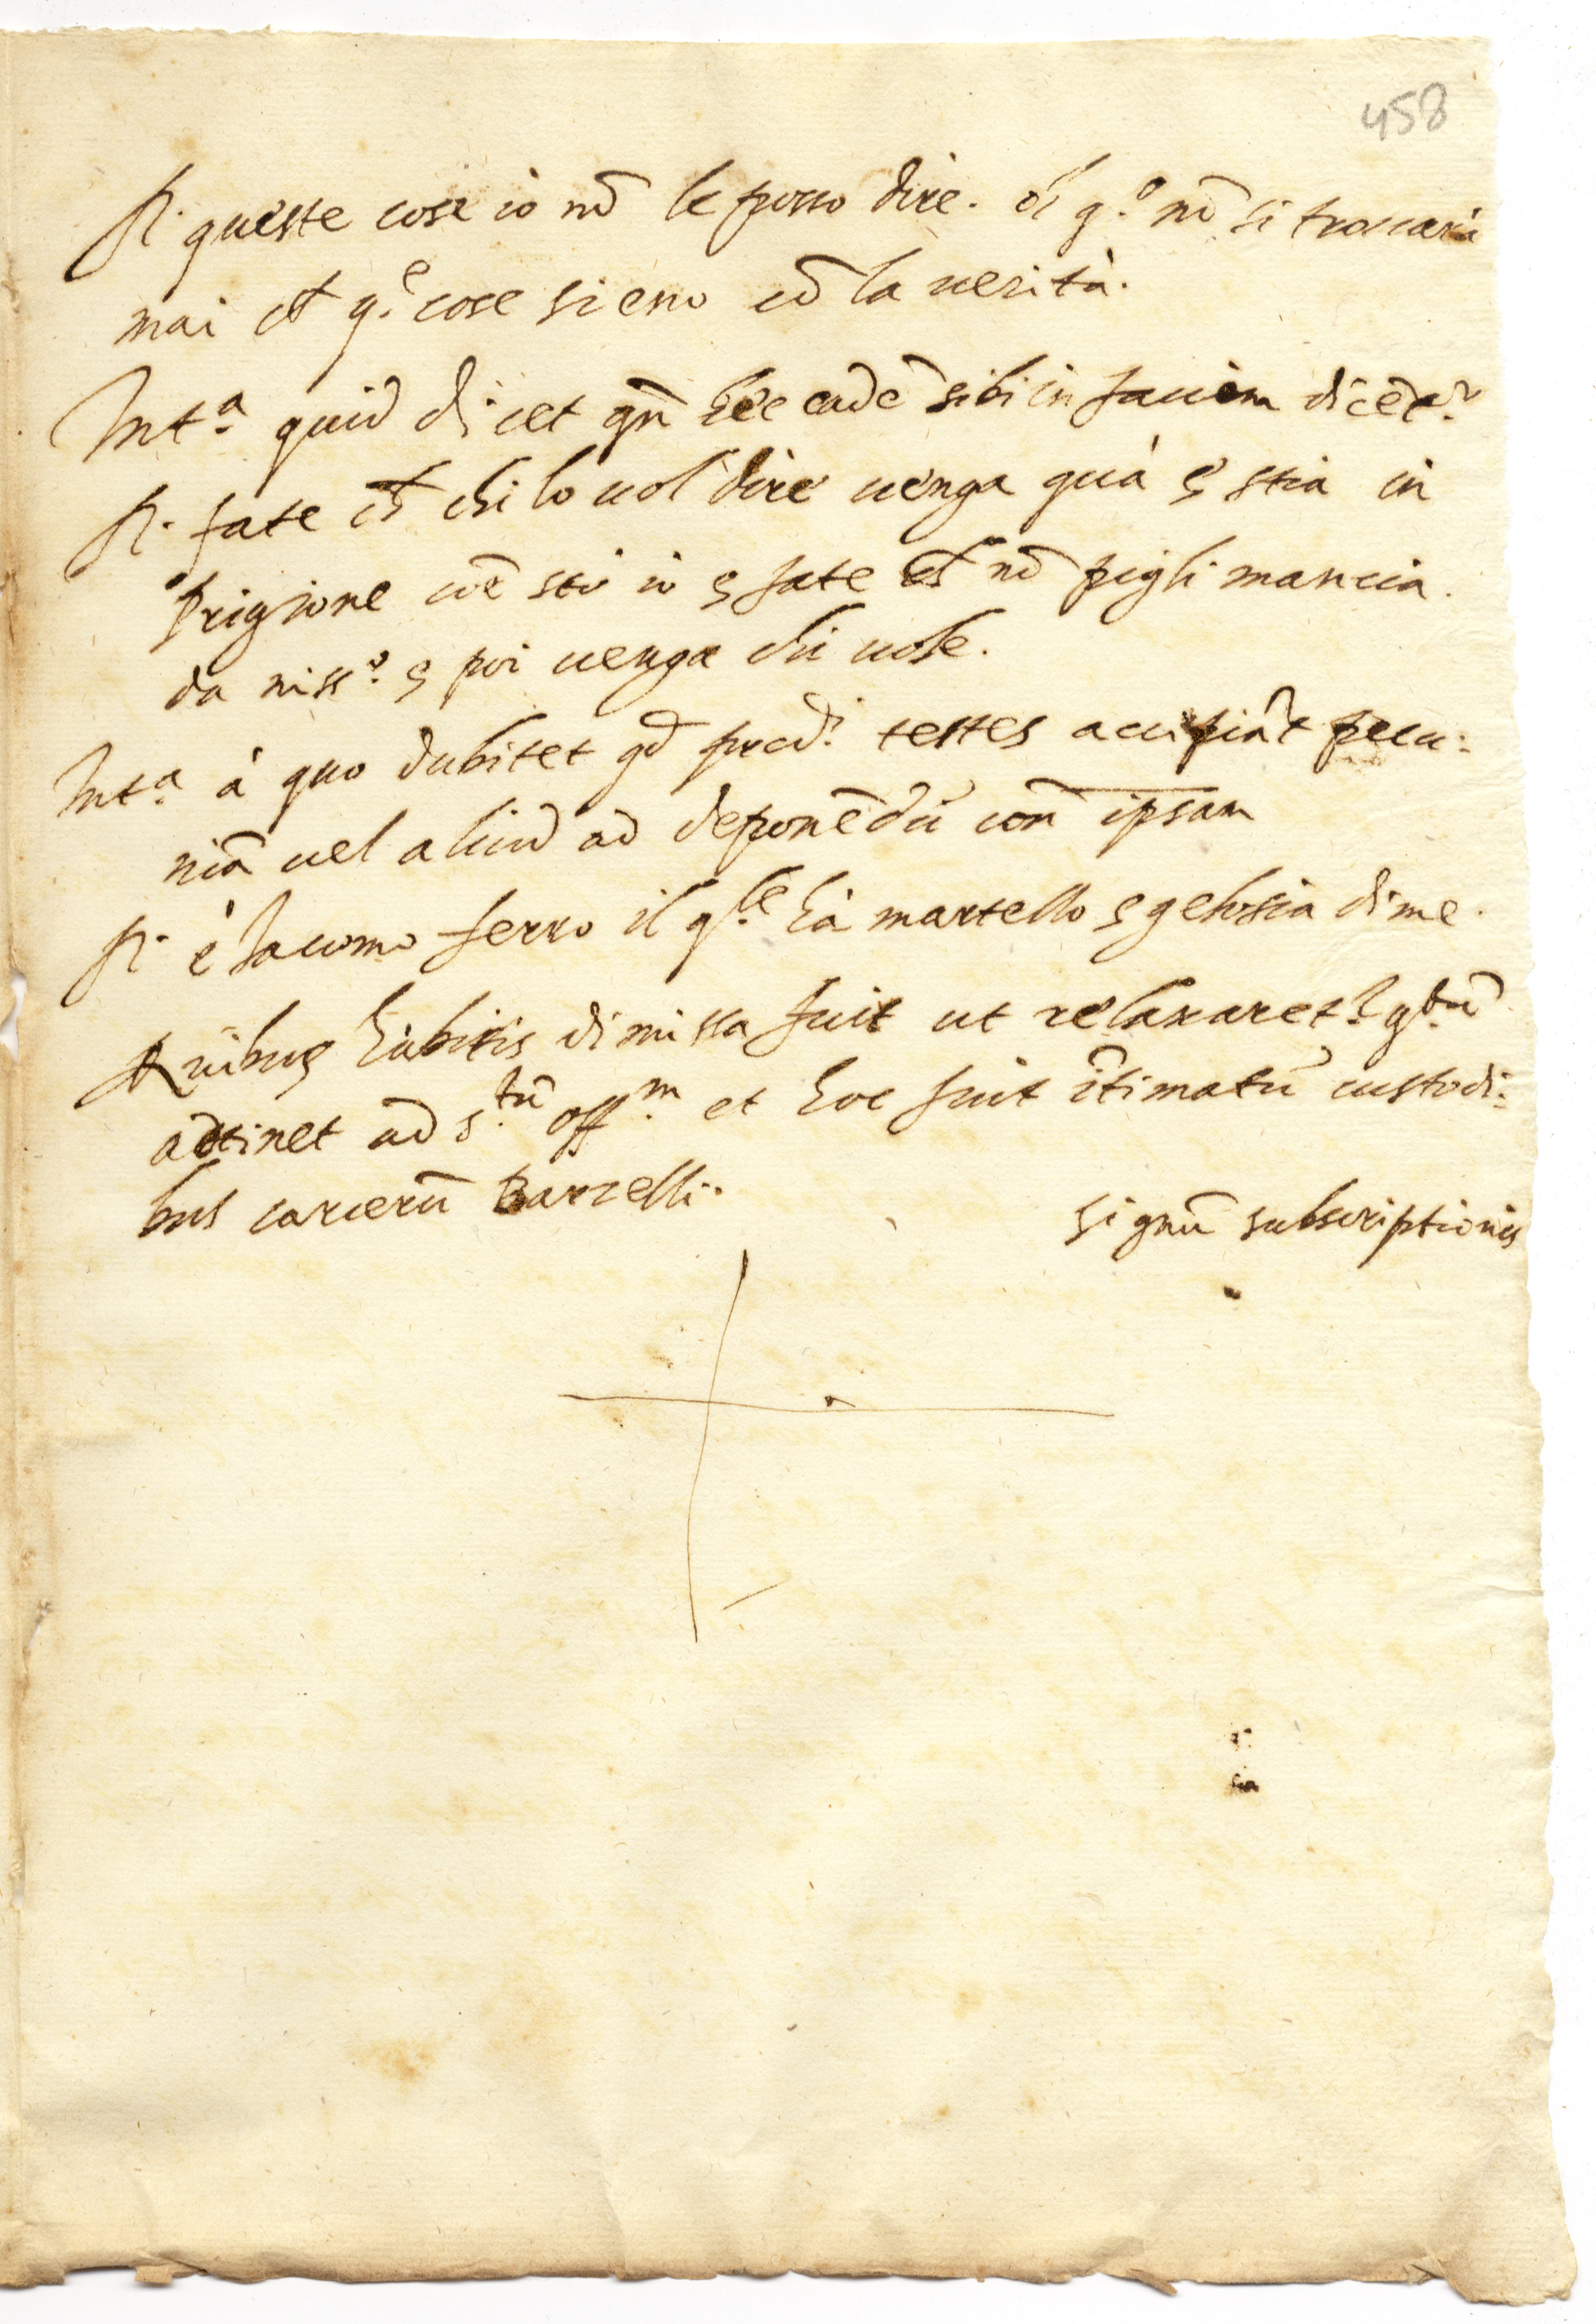 458
R. queste cose io nō le posso dire. et q.º nō si trovarà
mai ch̄ q.e cose sieno cō la verità.
Int.a quid dicet qn̄ hec eadē sibi in faciem dicēt.r
R. fate ch̄ chi lo vol dire venga quà ę stia in
prigione coē stò io ę fate ch̄ nō pigli mancia
da niss.º ę poi venga chi vole.
Int.a à quo dubitet qđ pred.i testes accipiāt pecu:
niā vel aliud ad deponēdū con̄ ipsam
R. è Jacomo ferro il q.le hà martello ę gelosia di me.
Quibus habitis dimissa fuit ut relaxaret.r q.tū
attinet ad S.tū off.m et hoc fuit ītimatū custodi:
bus carcerū Barcelli.
Signū subscriptionis